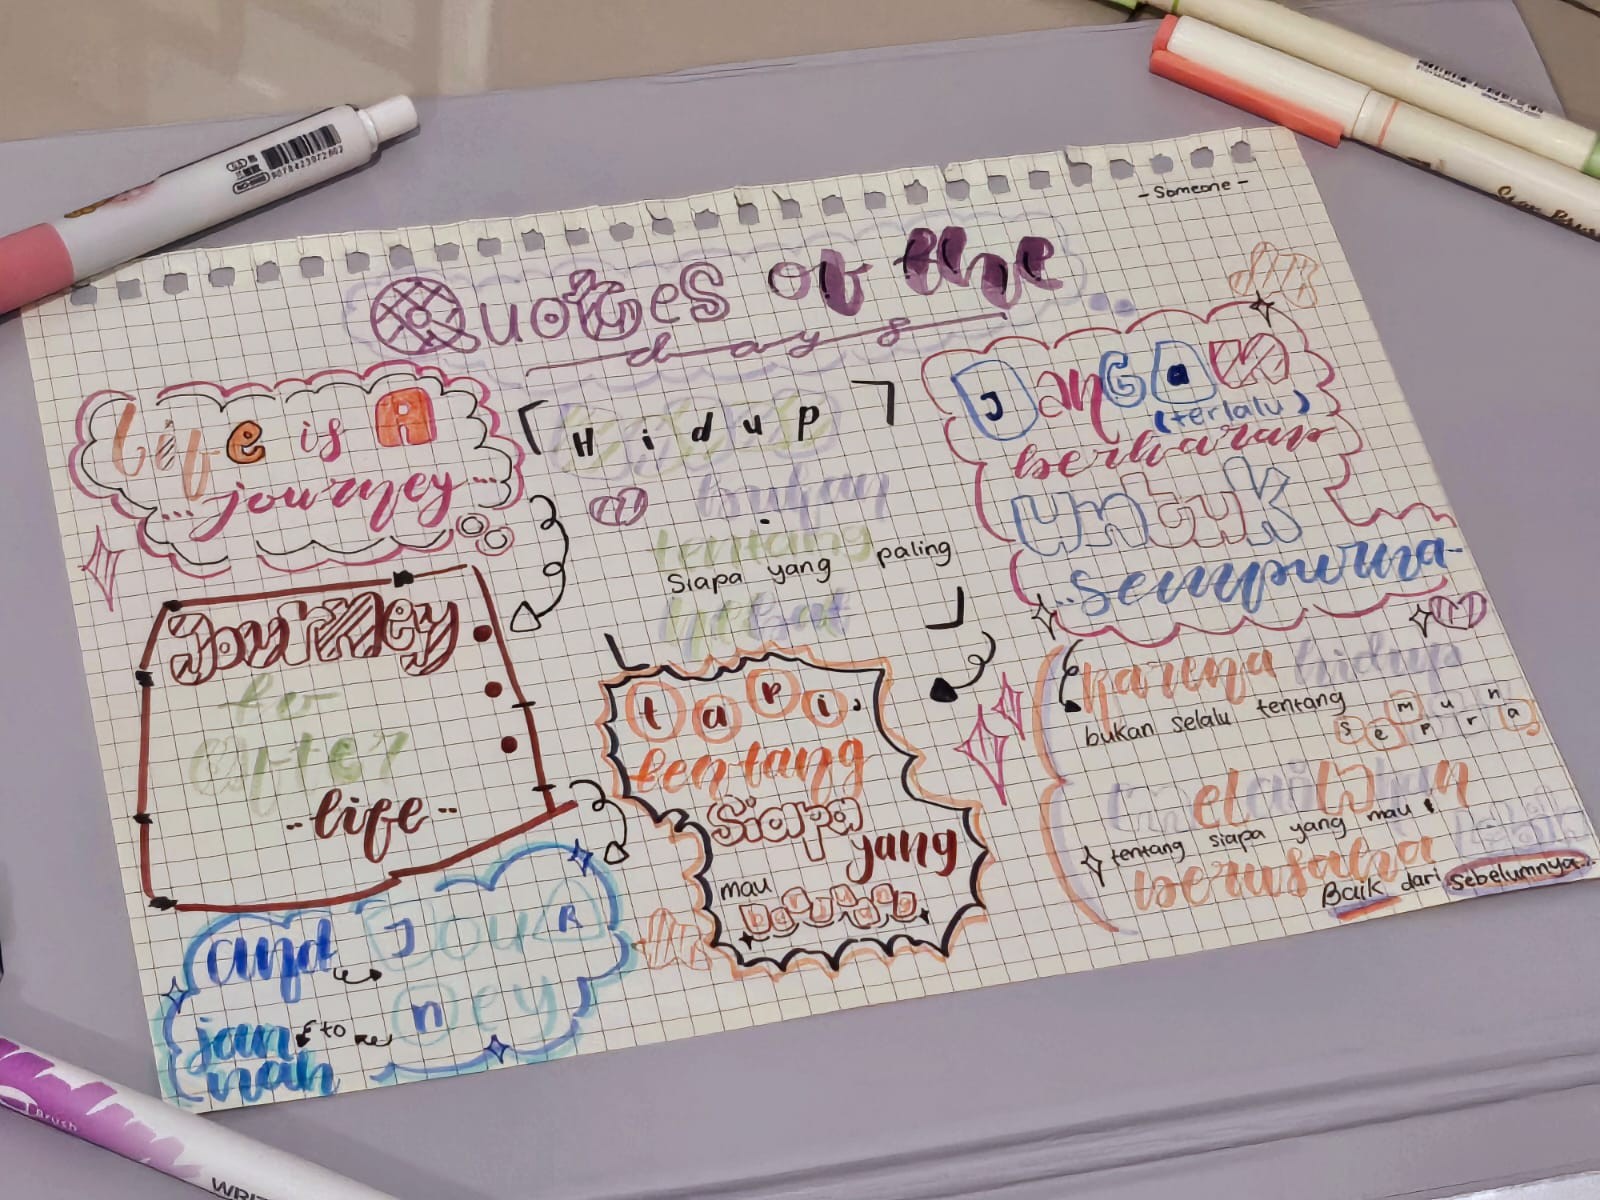 - Someone -
Quotes of the
days
Life is A
...journey...
Journey
to
after
-- life --
and Jou R
ney
to
jan
nah
Hidup
bukan
tentang
Siapa yang paling
hebat
tapi,
tentang
Siapa
yang
mau
berjuang
JanGAN
(terlalu)
berharap
untuk
...sempurna...
karena hidup
bukan selalu tentang
sempurna
melainkan
tentang siapa yang mau
berusaha lebih
Baik dari sebelumnya...
6978423972602
Brush